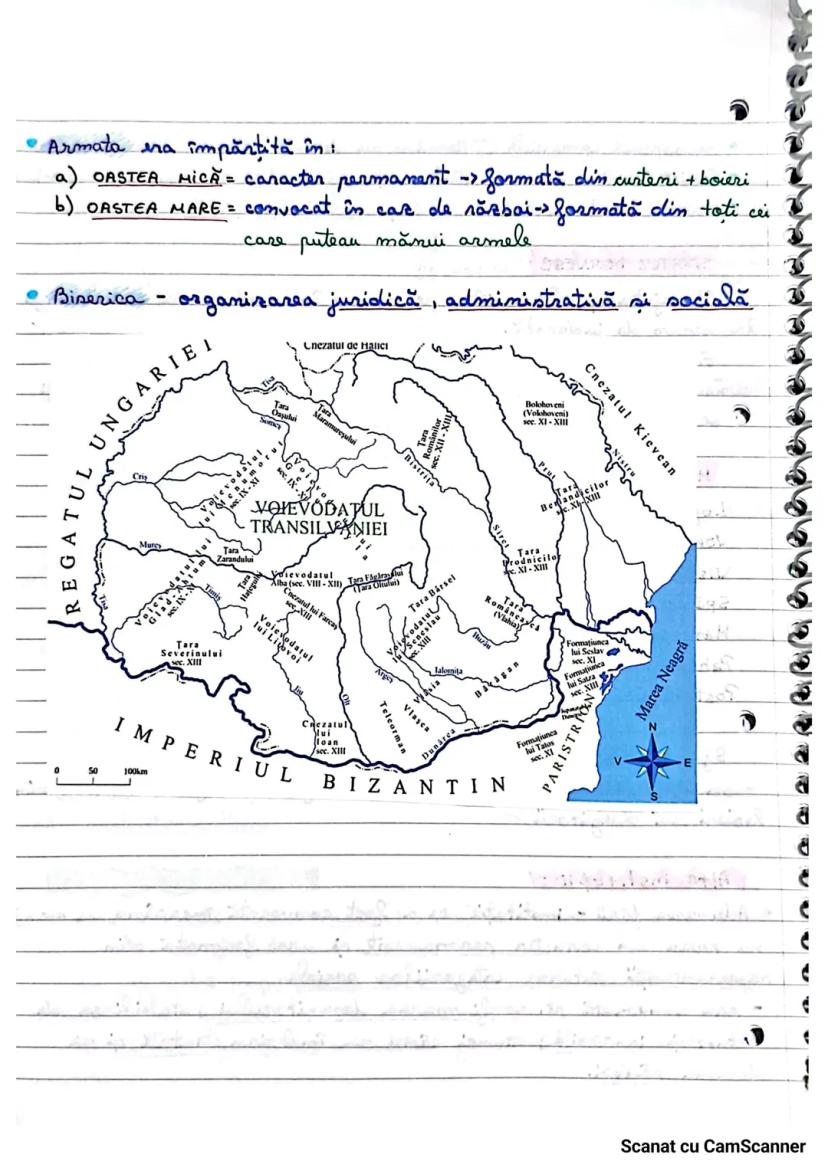 • Armata era împărțită în:
a) OASTEA MICĂ = caracter permanent -> formată din curteni + boieri
b) OASTEA MARE = convocat în caz de război -> formată din toți cei
care puteau mânui armele
• Biserica - organizarea juridică, administrativă și socială
Cnezatul de Halici
REGATUL UNGARIEI
Cnezatul Kievean
Tisa
Țara
Oașului
Țara
Maramureșului
Someș
Țara
Românilor
sec. XII - XIII
Bolohoveni
(Volohoveni)
sec. XI - XIII
Criș
Voievodatul
lui Menumorut
sec. IX - XI
Bistrița
Prut
Nistru
Țara
Berladnicilor
sec. XI - XIII
VOIEVODATUL
TRANSILVANIEI
Mureș
Țara
Zarandului
Siret
Țara
Brodnicilor
sec. XI - XIII
Voievodatul
Alba (sec. VIII - XII)
Țara Făgărașului
(Țara Oltului)
Țara
Hațegului
Timiș
Cnezatul lui Farcaș
sec. XIII
Țara Bârsei
Țara
Românească
(Vlahia)
Voievodatul
lui Litovoi
Voievodatul
lui Seneslau
sec. XIII
Buzău
Țara
Severinului
sec. XIII
Formațiunea
lui Seslav
sec. XI
Formațiunea
lui Satza
sec. XIII
Ialomița
Argeș
Bărăgan
Vlașca
Teleorman
Jiu
Olt
Cnezatul
lui
Ioan
sec. XIII
Dunărea
Formațiunea
lui Tatos
sec. XI
PARISTRION
Marea Neagră
IMPERIUL BIZANTIN
N
V E
S
0 50 100km
Scanat cu CamScanner